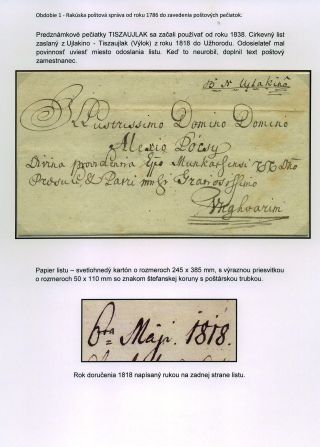 Obdobie 1 - Rakúska poštová správa od roku 1786 do zavedenia poštových pečiatok.
Predznámkové pečiatky TISZAUJLAK sa začali používať od roku 1838. Cirkevný list
zaslaný z Ujlakino - Tiszaujlak (Výlok) z roku 1818 do Užhorodu. Odosielateľ mal
povinnosť uviesť miesto odoslania listu. Keď to neurobil, doplnil text poštový
zamestnanec.
Ujlakino
Illustrissimo Domino Domino
Alexio Pócsy
Divina providentia Munkacsensi
Presule, & Patri Gratiosissimo
Unghvarini
Papier listu – svetlohnedý kartón o rozmeroch 245 x 385 mm, s výraznou priesvitkou
o rozmeroch 50 x 110 mm so znakom štefanskej koruny s poštárskou trúbkou.
Maji 1818.
Rok doručenia 1818 napísaný rukou na zadnej strane listu.